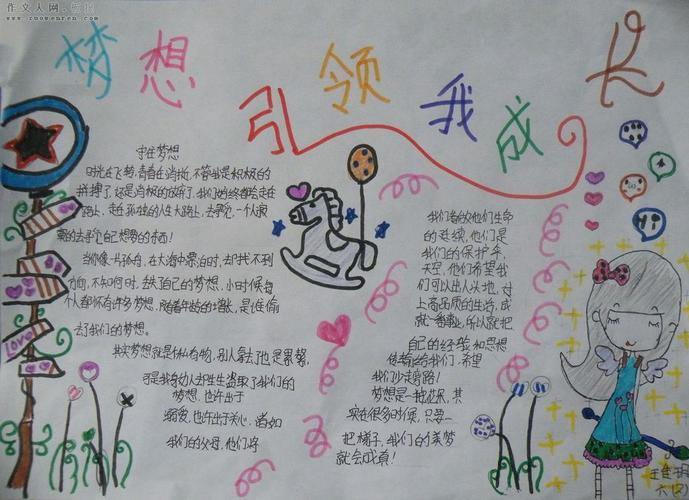 作文人网
www.zuowenren.com
梦想
引领我成长
守住梦想
时光在飞梦，青春在消逝，不管我是积极的
拼搏了，还是消极的放弃了，我们始终都会走在
路上，走在孤独的人生大路上，去寻觅，一个人寂
寞的去寻觅自己想要的东西！
当你像一片孤舟，在大海中漂泊时，却找不到
方向，不知何时，失了自己的梦想，小时候每
个人都怀有许多梦想，随着年龄的增长，是谁偷
去了我们的梦想。
其实梦想就是你私有物，别人拿去了也是累赘，
可是我身边人却生生盗取了我们的
梦想，也许出于
溺爱，也许出于关心，诸如
我们的父母，他们将
我们看的他们生命
的延续，他们是
我们的保护伞，
天空，他们希望我
们可以出人头地，过
上高品质的生活，成
就一番事业，所以就把
自己的经验和思想
传输给我们，希望
我们少走弯路！
梦想是一抽花朵，其
实在很多时候，只要一
把梯子，我们的美梦
就会成真！
Love